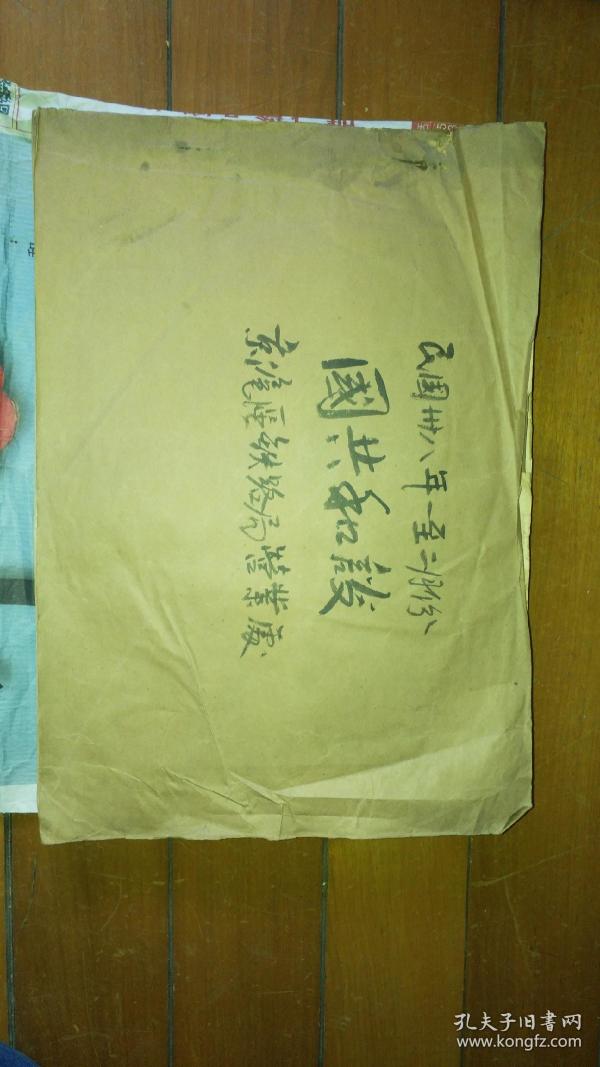 民国卅八年一至二月份
國共和談
京滬區鉄路局營業處
孔夫子旧書网
www.kongfz.com